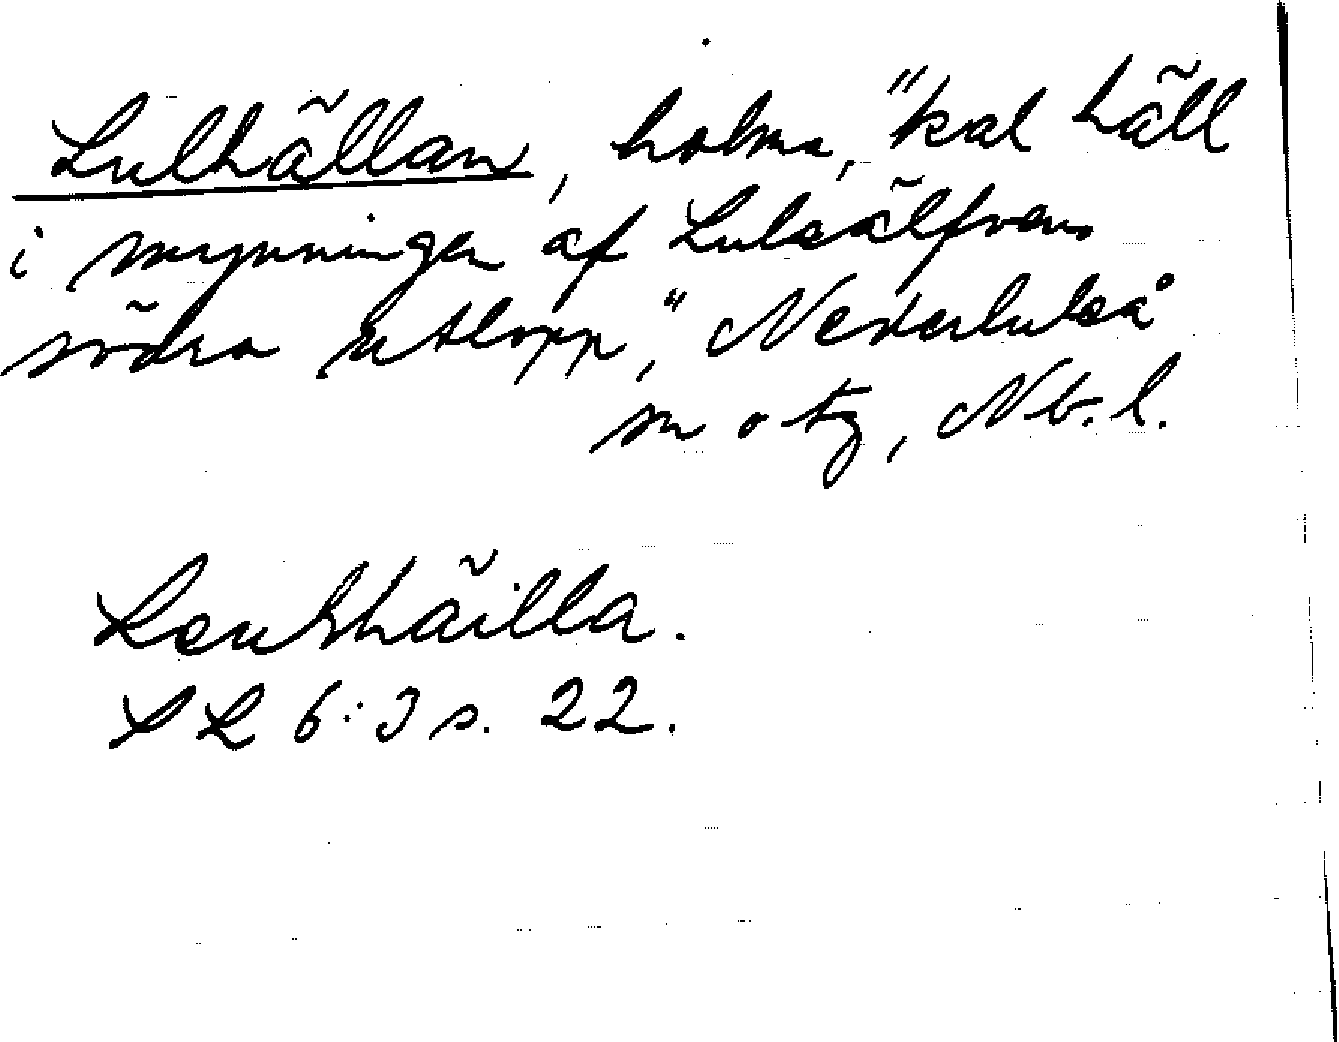 Lulhällan, holme, "kal häll
i mynningen af Luleälfvens
södra utlopp", Nederluleå
sn o tg, Nb. l.
Leukhäilla.
SL 6:3 s. 22.